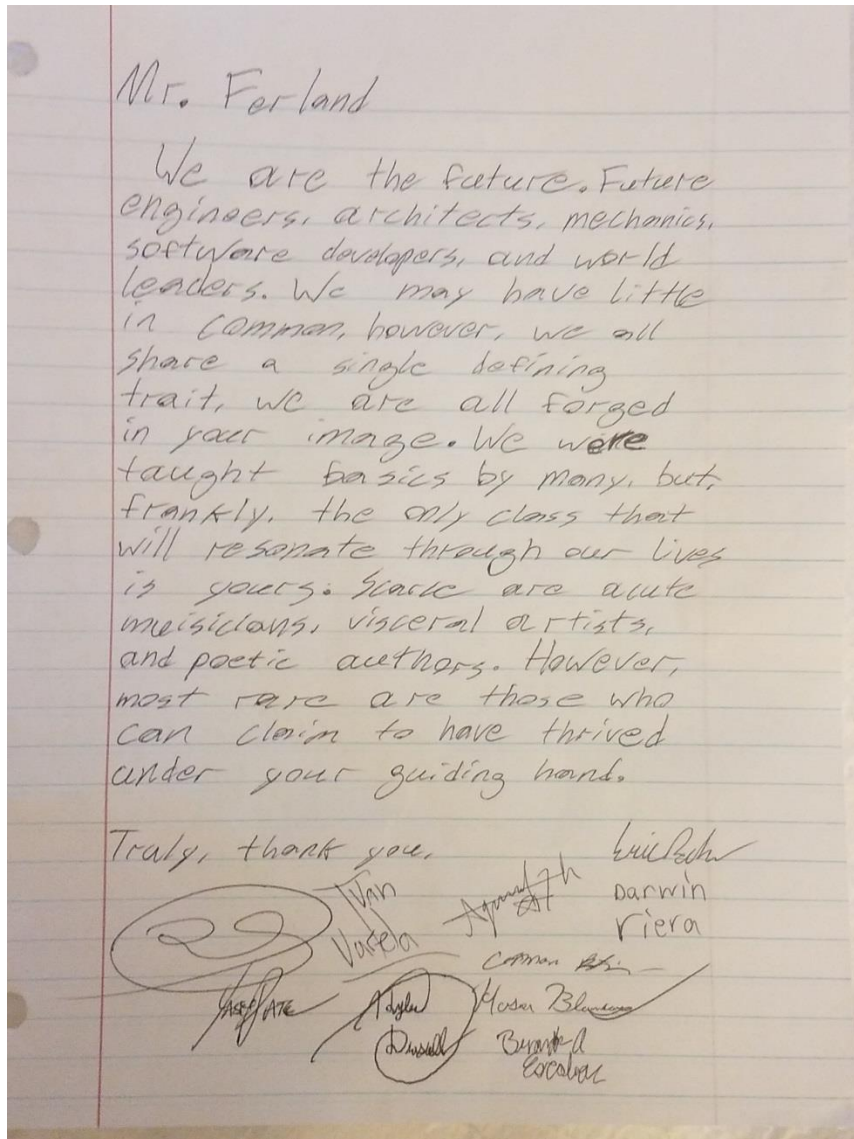 Mr. Ferland
We are the future. Future
engineers, architects, mechanics,
software developers, and world
leaders. We may have little
in common, however, we all
share a single defining
trait, we are all forged
in your image. We were
taught basics by many, but,
frankly, the only class that
will resonate through our lives
is yours. Scarce are acute
muisicians, visceral artists,
and poetic authors. However,
most rare are those who
can claim to have thrived
under your guiding hand.
Truly, thank you,
Ivan
Varela
Eric
Darwin
riera